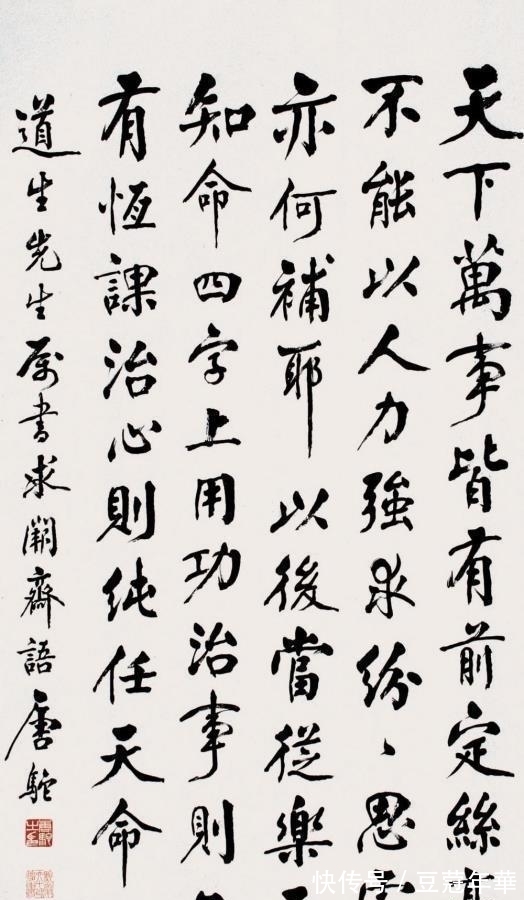 天下萬事皆有前定絲
不能以人力強求紛、思
亦何補耶以後當從樂
知命四字上用功治事則
有恆課治心則純任天命
道生先生属書求闕齋語 唐駝
快传号 / 豆蔻年華